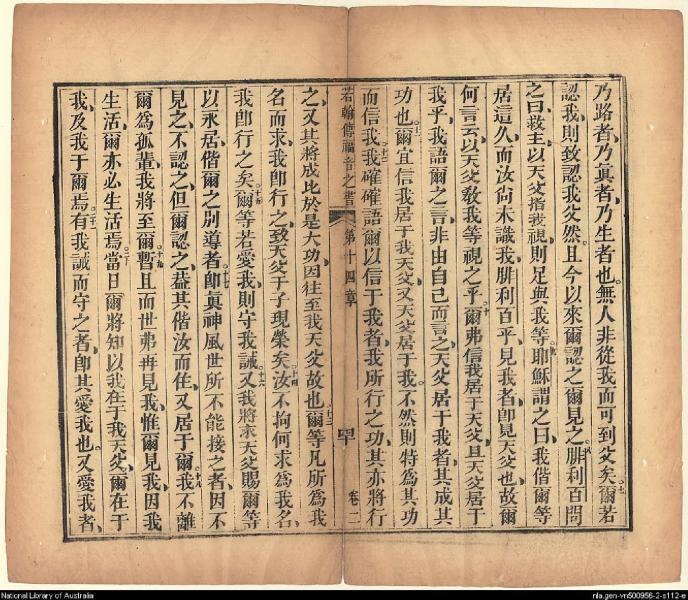 乃路者乃眞者乃生者也無人非從我而可到父矣七爾若
認我則致認我父然且今以來爾認之爾見之八腓利百問
之曰救主以天父指我視則足與我等九耶穌謂之曰我偕爾等
居這久而汝尚未識我腓利百乎見我者卽見天父也故爾
何言云以天父教我等視之乎十爾弗信我居于天父且天父居于
我乎我語爾之言非由自己而言之天父居于我者其成其
功也十一爾宜信我居于我天父又天父居于我不然則特爲其功
而信我十二我確確語爾以信于我者我所行之功其亦將行
若翰傳福音之書 第十四章 卷二
之又其將成比於是大功因往至我天父故也十三爾等凡所爲我
名而求我卽行之致天父于子現榮矣十四汝不拘何求爲我名
我卽行之矣十五爾等若愛我則守我誡十六又我將求天父賜爾等
以永居偕爾之別導者十七卽眞神風世所不能接之者因不
見之不認之但爾認之蓋其偕汝而住又居于爾十八我不離
爾爲孤輩我將至爾十九暫且而世弗再見我惟爾見我因我
生活爾亦必生活焉二十當日爾將知以我在于我天父爾在于
我及我于爾焉二十一有我誡而守之者卽其愛我也又愛我者
National Library of Australia
nla.gen-vn500956-2-s112-e